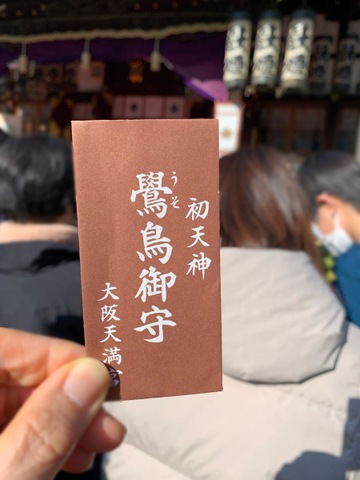 初天神
鷽鳥御守
うそ
大阪天満宮